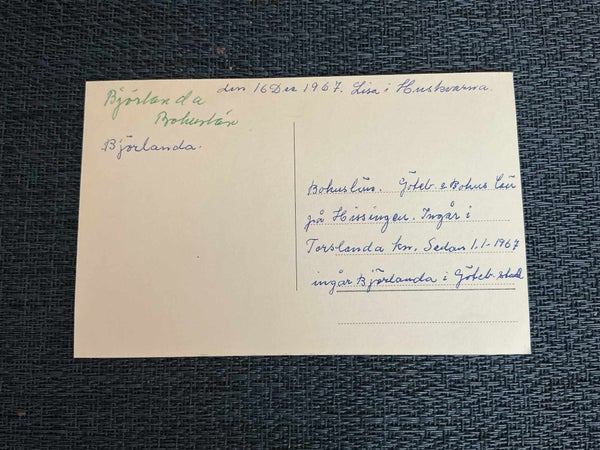 den 16 Dec 1967. Lisa i Huskvarna.
Björlanda
Bohuslän
Björlanda.
Bohuslän. Göteb. o Bohus län
på Hissingen. Ingår i
Torslanda kn. Sedan 1.1-1967
ingår Björlanda i Göteb. stad